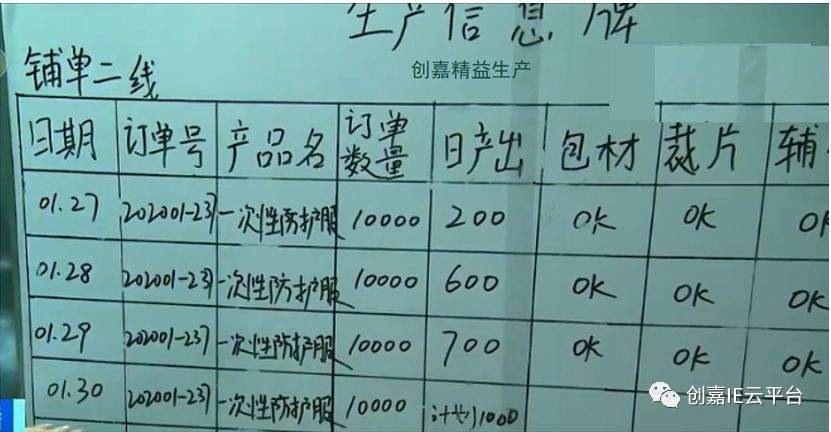 生产信息牌
创嘉精益生产
铺单二线
日期 订单号 产品名 订单数量 日产出 包材 裁片 辅
01.27 202001-237 一次性防护服 10000 200 OK OK OK
01.28 202001-237 一次性防护服 10000 600 OK OK OK
01.29 202001-237 一次性防护服 10000 700 OK OK OK
01.30 202001-237 一次性防护服 10000 计划1000
创嘉IE云平台